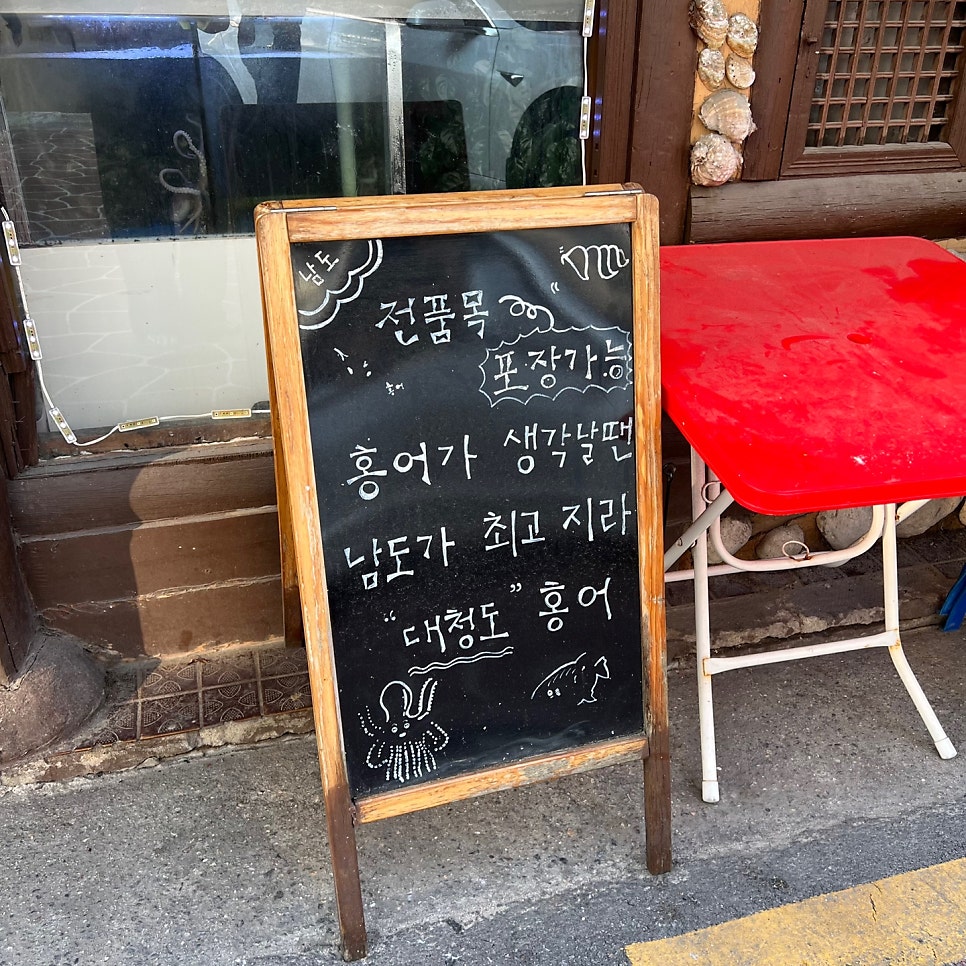 남도
전품목
포장가능
홍어
홍어가 생각날땐
남도가 최고 지라
"대청도" 홍어